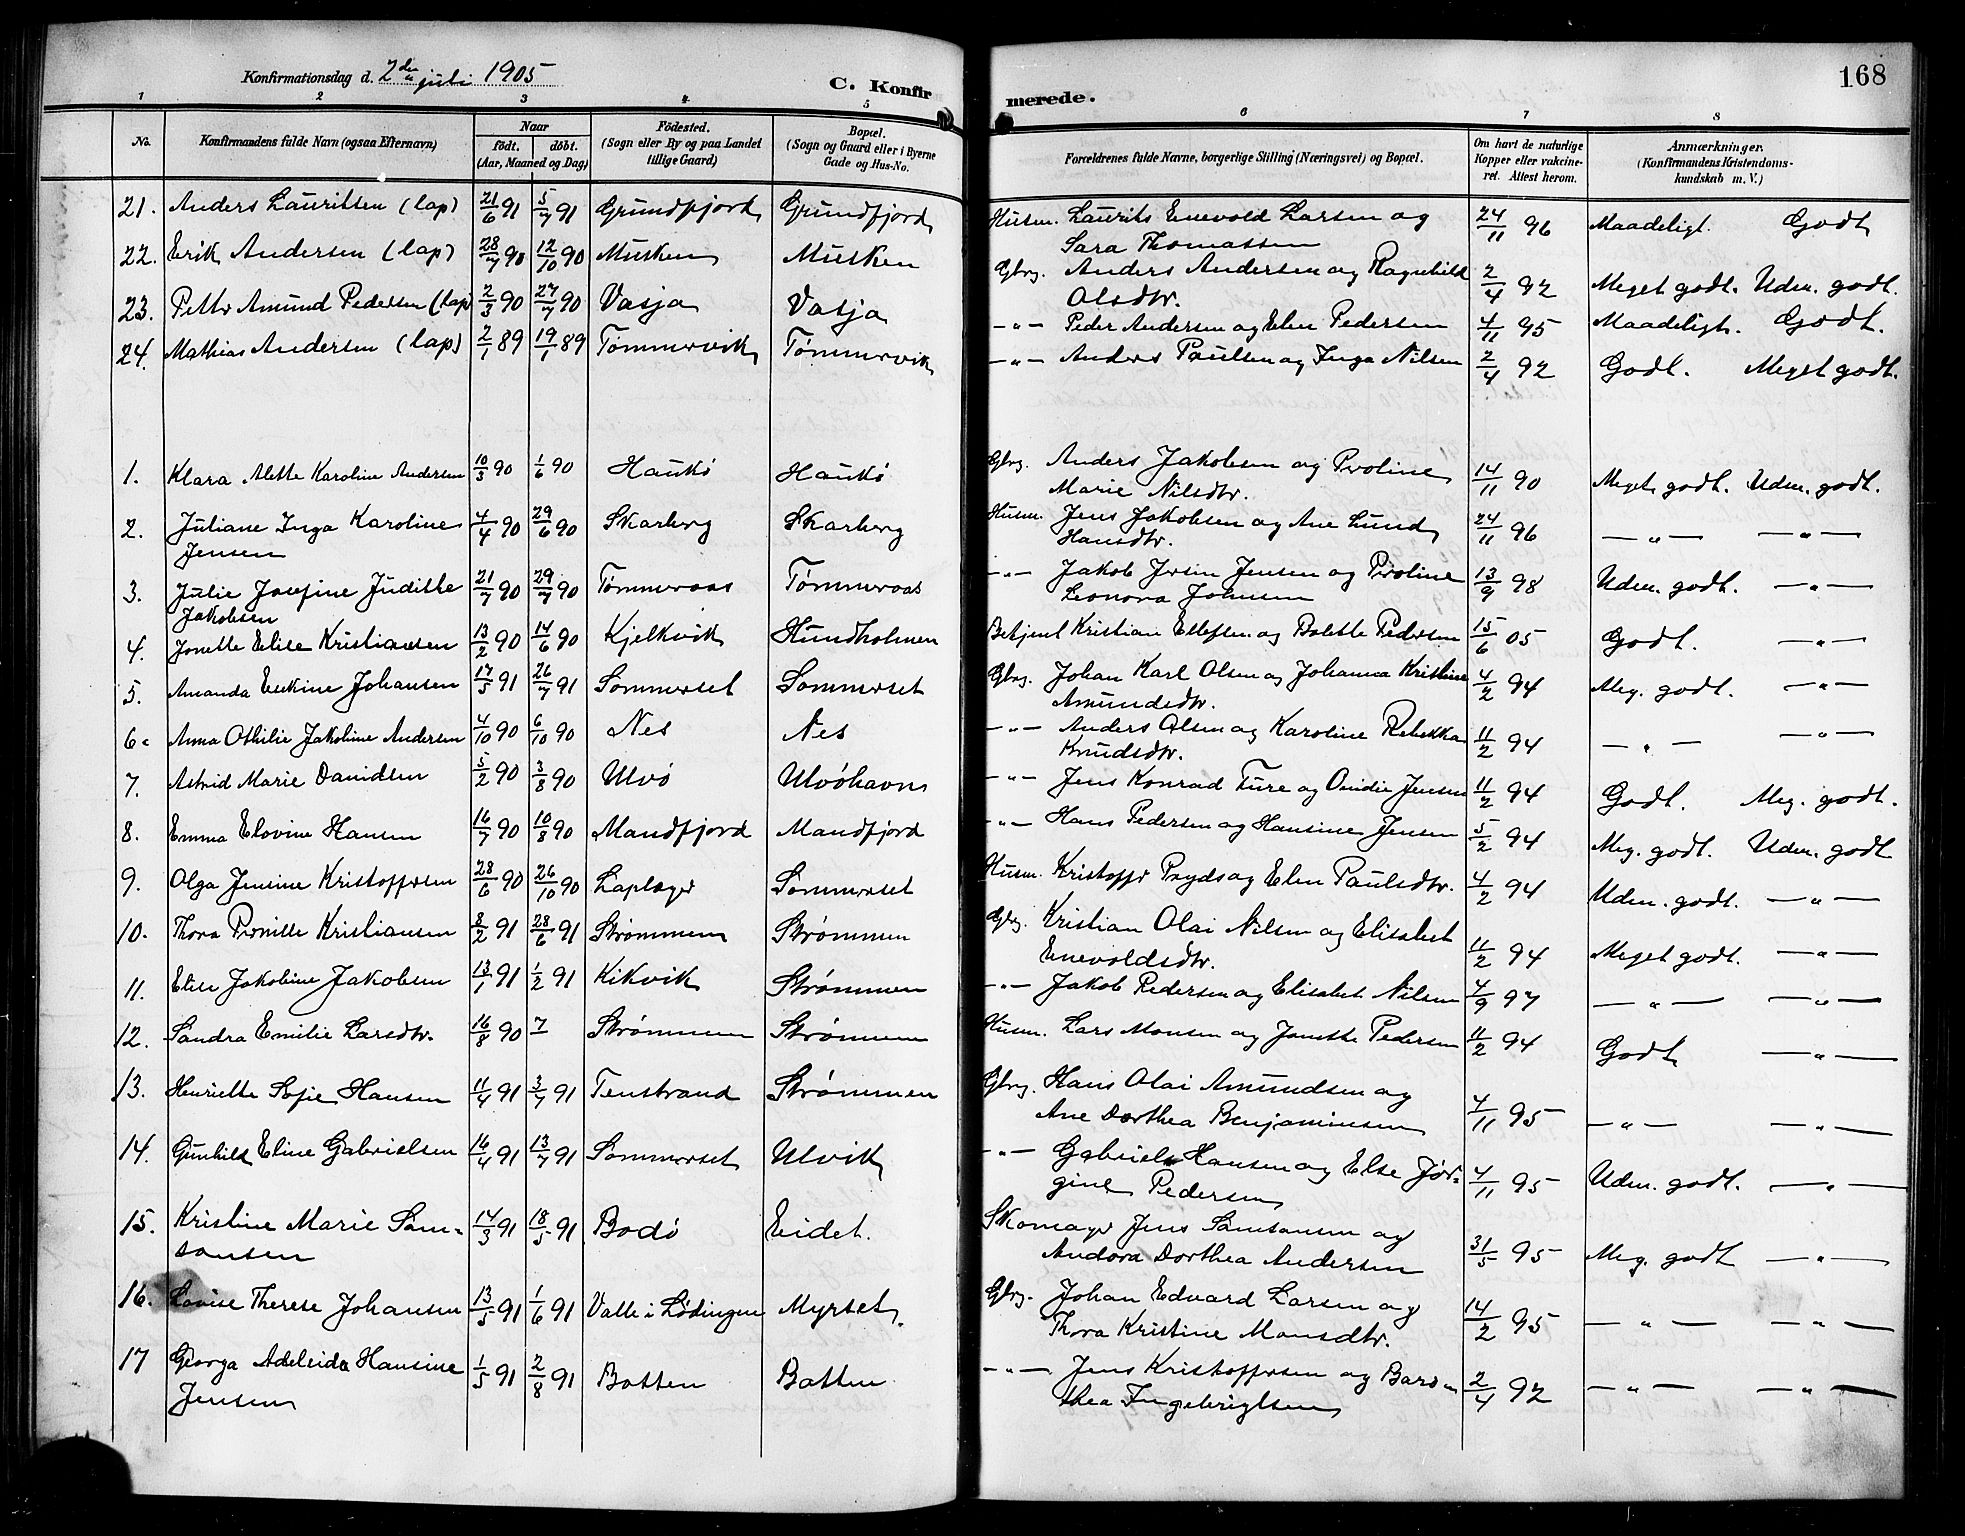 Konfirmationsdag d. 2den juli 1905
C. Konfir
merede.
168
1 2 3 4 5 6 7 8
No. Konfirmandens fulde Navn (ogsaa Efternavn) Naar født. døbt. (Aar, Maaned og Dag) Födested. (Sogn eller By og paa Landet tillige Gaard) Bopæl. (Sogn og Gaard eller i Byerne Gade og Hus-No. Forældrenes fulde Navne, borgerlige Stilling (Næringsvei) og Bopæl. Om havt de naturlige Kopper eller vakcineret. Attest herom. Anmærkninger. (Konfirmandens Kristendomskundskab m. V.)
21. Anders Lauritsen (lap) 21/6 91 5/7 91 Grundfjord Grundfjord Husm. Laurits Enevold Larsen og 24/11 96 Maadeligt. Godt
Sara Thomassen
22. Erik Andersen (lap) 28/7 90 12/10 90 Musken Musken Gbrg. Anders Andersen og Ragnhild 2/4 92 Meget godt. Udm. godt.
Olsdtr.
23. Petter Amund Pedersen (lap) 2/3 90 27/7 90 Vasja Vasja -"- Peder Andersen og Elen Pedersen 4/11 95 Maadeligt. Godt.
24. Mathias Andersen (lap) 2/1 89 19/1 89 Tømmervik Tømmervik -"- Anders Paulsen og Inga Nilsen 2/4 92 Godt. Meget godt.
1. Klara Alette Karoline Andersen 10/3 90 1/6 90 Haukø Haukø Gbrg. Anders Jakobsen og Proline 14/11 90 Meget godt. Udm. godt.
Marie Nilsdtr.
2. Juliane Inga Karoline 4/4 90 29/6 90 Skarberg Skarberg Husm. Jens Jakobsen og Ane Lund 24/11 96 -"- -"-
Jensen Hansdtr.
3. Julie Josefine Judithe 21/7 90 29/7 90 Tømmeraas Tømmeraas -"- Jakob Jensen og Proline 13/9 98 Udm. godt. -"-
Jakobsen Leonora Johnsen
4. Jonette Elise Kristiansen 13/2 90 14/6 90 Kjelkvik Hundholmen Betjent Kristian Ellefsen og Bolette Pedersen 15/6 05 Godt. -"-
5. Amanda Erikine Johansen 17/5 91 26/7 91 Sommerset Sommerset Gbrg. Johan Karl Olsen og Johanna Kristine 4/2 94 Meg. godt. -"-
Amundsdtr.
6. Anna Othilie Jakobine Andersen 4/10 90 6/10 90 Nes Nes -"- Anders Olsen og Karoline Rebekka 11/2 94 -"- -"-
Knudsdtr.
7. Astrid Marie Davidsen 5/2 90 3/8 90 Ulvö Ulvöhavn -"- Jens Konrad Ture og Ovidie Jensen 11/2 94 Godt. Meg. godt.
8. Emma Elovine Hansen 16/7 90 10/8 90 Mandfjord Mandfjord -"- Hans Pedersen og Hansine Jensen 5/2 94 Meg. godt. Udm. godt
9. Olga Jensine Kristoffersen 28/6 90 26/10 90 Laplæger Sommerset Husm. Kristoffer Pryds og Elen Paulsdtr. 4/2 94 Udm. godt. -"-
10. Thora Pernille Kristiansen 8/2 91 28/6 91 Strømmen Strømmen Gbrg. Kristian Olai Nilsen og Elisabet 11/2 94 Meget godt. -"-
Enevoldsdtr.
11. Elise Jakobine Jakobsen 13/1 91 1/2 91 Kikvik Strømmen -"- Jakob Pedersen og Elisabet Nilsen 4/9 97 -"- -"-
12. Sandra Emilie Larsdtr. 16/8 90 7 Strømmen Strømmen Husm. Lars Monsen og Jonette Pedersen 11/2 94 Godt -"-
13. Henriette Sofie Hansen 11/4 91 3/7 91 Tenstrand Strømmen Gbrg. Hans Olai Amundsen og 4/11 95 -"- -"-
Ane Dorthea Benjaminsen
14. Gunhild Eline Gabrielsen 16/4 91 13/7 91 Sommerset Ulvik -"- Gabriel Hansen og Else Jør- 4/11 95 Udm. godt. -"-
gine Pedersen
15. Kristine Marie Sam- 14/3 91 18/5 91 Bodö Eidet. Skomager Jens Samsonsen og 31/5 95 Meg. godt -"-
sonsen Andora Dorthea Andersen
16. Lovise Therese Johansen 13/5 91 1/6 91 Valle i Lødingen Myrset. Gbrg. Johan Edvard Larsen og 14/2 95 -"- -"-
Thora Kristine Monsdtr.
17 Georga Adeleida Hansine 1/5 91 2/8 91 Botten Botten -"- Jens Kristoffersen og Baro- 2/4 92 -"- -"-
Jensen thea Ingebrigtsen